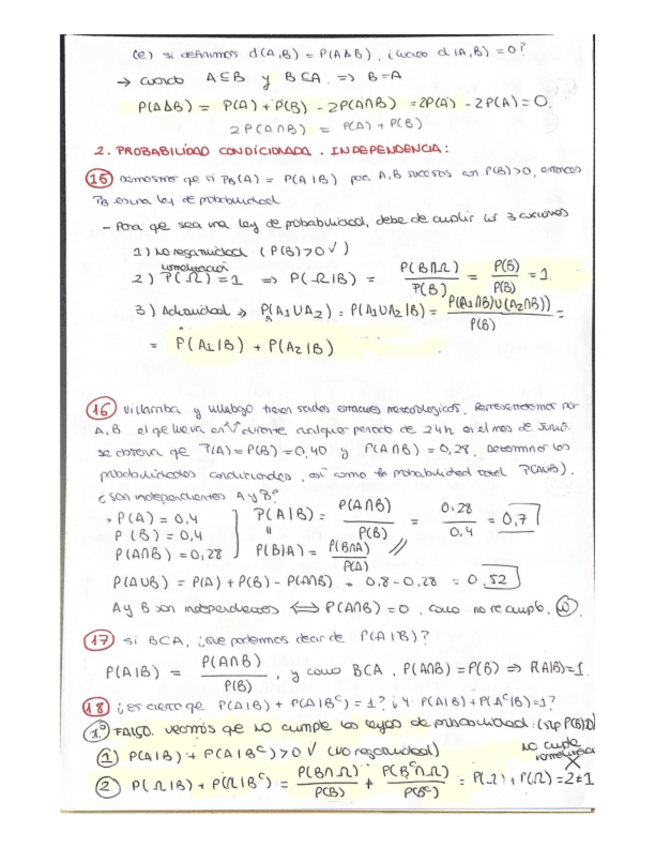 (e) si definimos d(A,B) = P(AΔB), ¿cuando d(A,B) = 0?
→ cuando A⊆B y B⊆A. ⇒ B=A
P(AΔB) = P(A) + P(B) - 2P(A∩B) = 2P(A) - 2P(A) = 0.
2P(A∩B) = P(A) + P(B)
2. PROBABILIDAD CONDICIONADA. INDEPENDENCIA:
15 Demostrar que si P_B(A) = P(A|B) para A,B sucesos con P(B)>0, entonces
P_B es una ley de probabilidad
- Para que sea una ley de probabilidad, debe de cumplir los 3 axiomas
1) No negatividad (P(B)>0 ✓)
normalización
2) P(Ω)=1 ⇒ P(Ω|B) = P(B∩Ω)/P(B) = P(B)/P(B) = 1.
3) Aditividad → P(A₁∪A₂) = P(A₁∪A₂|B) = P((A₁∩B)∪(A₂∩B))/P(B) =
= P(A₁|B) + P(A₂|B)
16 Villarriba y Villabajo tienen sendas estaciones meteorológicas. Representaremos por
A, B el que llueva en V durante cualquier periodo de 24h en el mes de Junio.
se observa que P(A)=P(B)=0,40 y P(A∩B)=0,28. Determinar las
probabilidades condicionales, así como la probabilidad total P(A∪B).
¿Son independientes A y B?
• P(A) = 0,4
P(B) = 0,4
P(A∩B) = 0,28
P(A|B) = P(A∩B)/P(B) = 0.28/0.4 = 0,7
"
P(B|A) = P(B∩A)/P(A) //
P(A∪B) = P(A) + P(B) - P(A∩B) = 0,8 - 0,28 = 0,52
A y B son independientes ⟺ P(A∩B) = 0. como no se cumple. NO.
17 Si B⊂A, ¿que podemos decir de P(A|B)?
P(A|B) = P(A∩B)/P(B), y como B⊂A, P(A∩B) = P(B) ⇒ P(A|B)=1.
18 ¿Es cierto que P(A|B) + P(A|Bᶜ) = 1? ¿Y P(A|B) + P(Aᶜ|B)=1?
1º FALSO. veamos que NO cumple las leyes de probabilidad: (sup P(B)>0)
1 P(A|B) + P(A|Bᶜ) > 0 ✓ (No negatividad)
No cumple normalización
2 P(Ω|B) + P(Ω|Bᶜ) = P(B∩Ω)/P(B) + P(Bᶜ∩Ω)/P(Bᶜ) = P(Ω) + P(Ω) = 2≠1